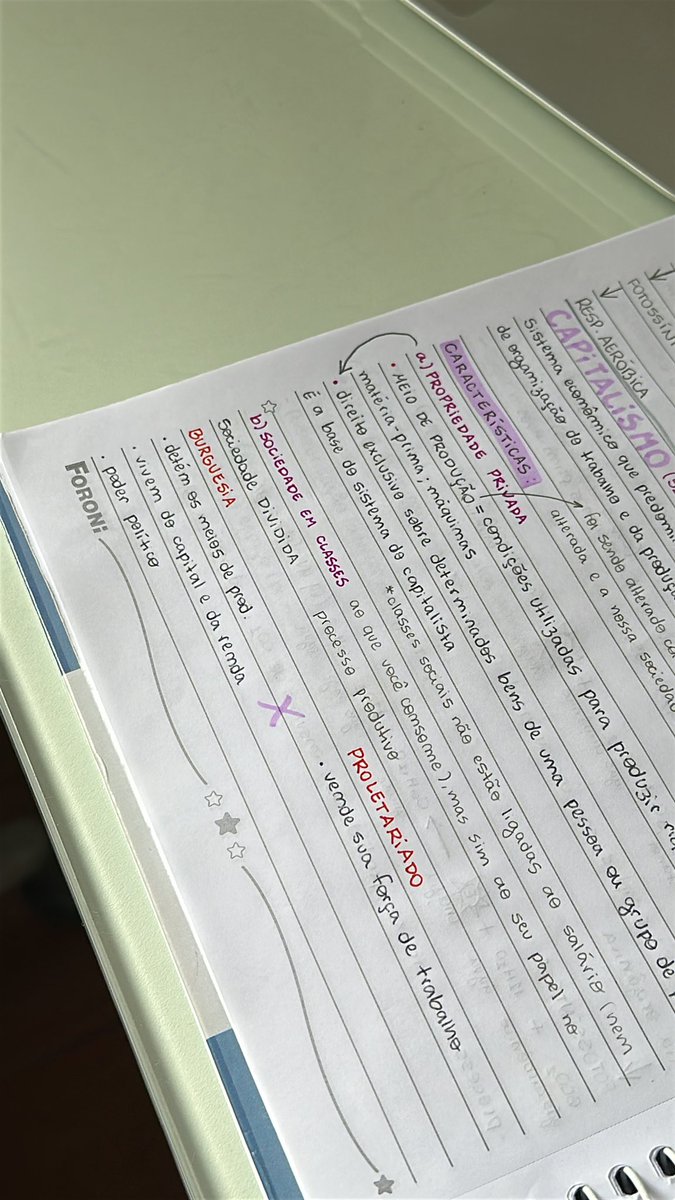 FOTOSSÍN
RESP. AERÓBICA
CAPITALISMO
Sistema econômico que predomi
de organização do trabalho e da produçã
foi sendo alterado co
alterada e a nossa sociedad
CARACTERÍSTICAS:
a) PROPRIEDADE PRIVADA
• MEIO DE PRODUÇÃO = condições utilizadas para produzir
matéria-prima; máquinas
• direito exclusivo sobre determinados bens de uma pessoa ou grupo de
É a base do sistema do capitalista
*classes sociais não estão ligadas ao salário (nem
b) SOCIEDADE EM CLASSES ao que você consome), mas sim ao seu papel no
Sociedade DIVIDIDA processo produtivo
BURGUESIA X PROLETARIADO
• detém os meios de prod. • vende sua força de trabalho
• vivem do capital e da renda
• poder polítio
FORONI